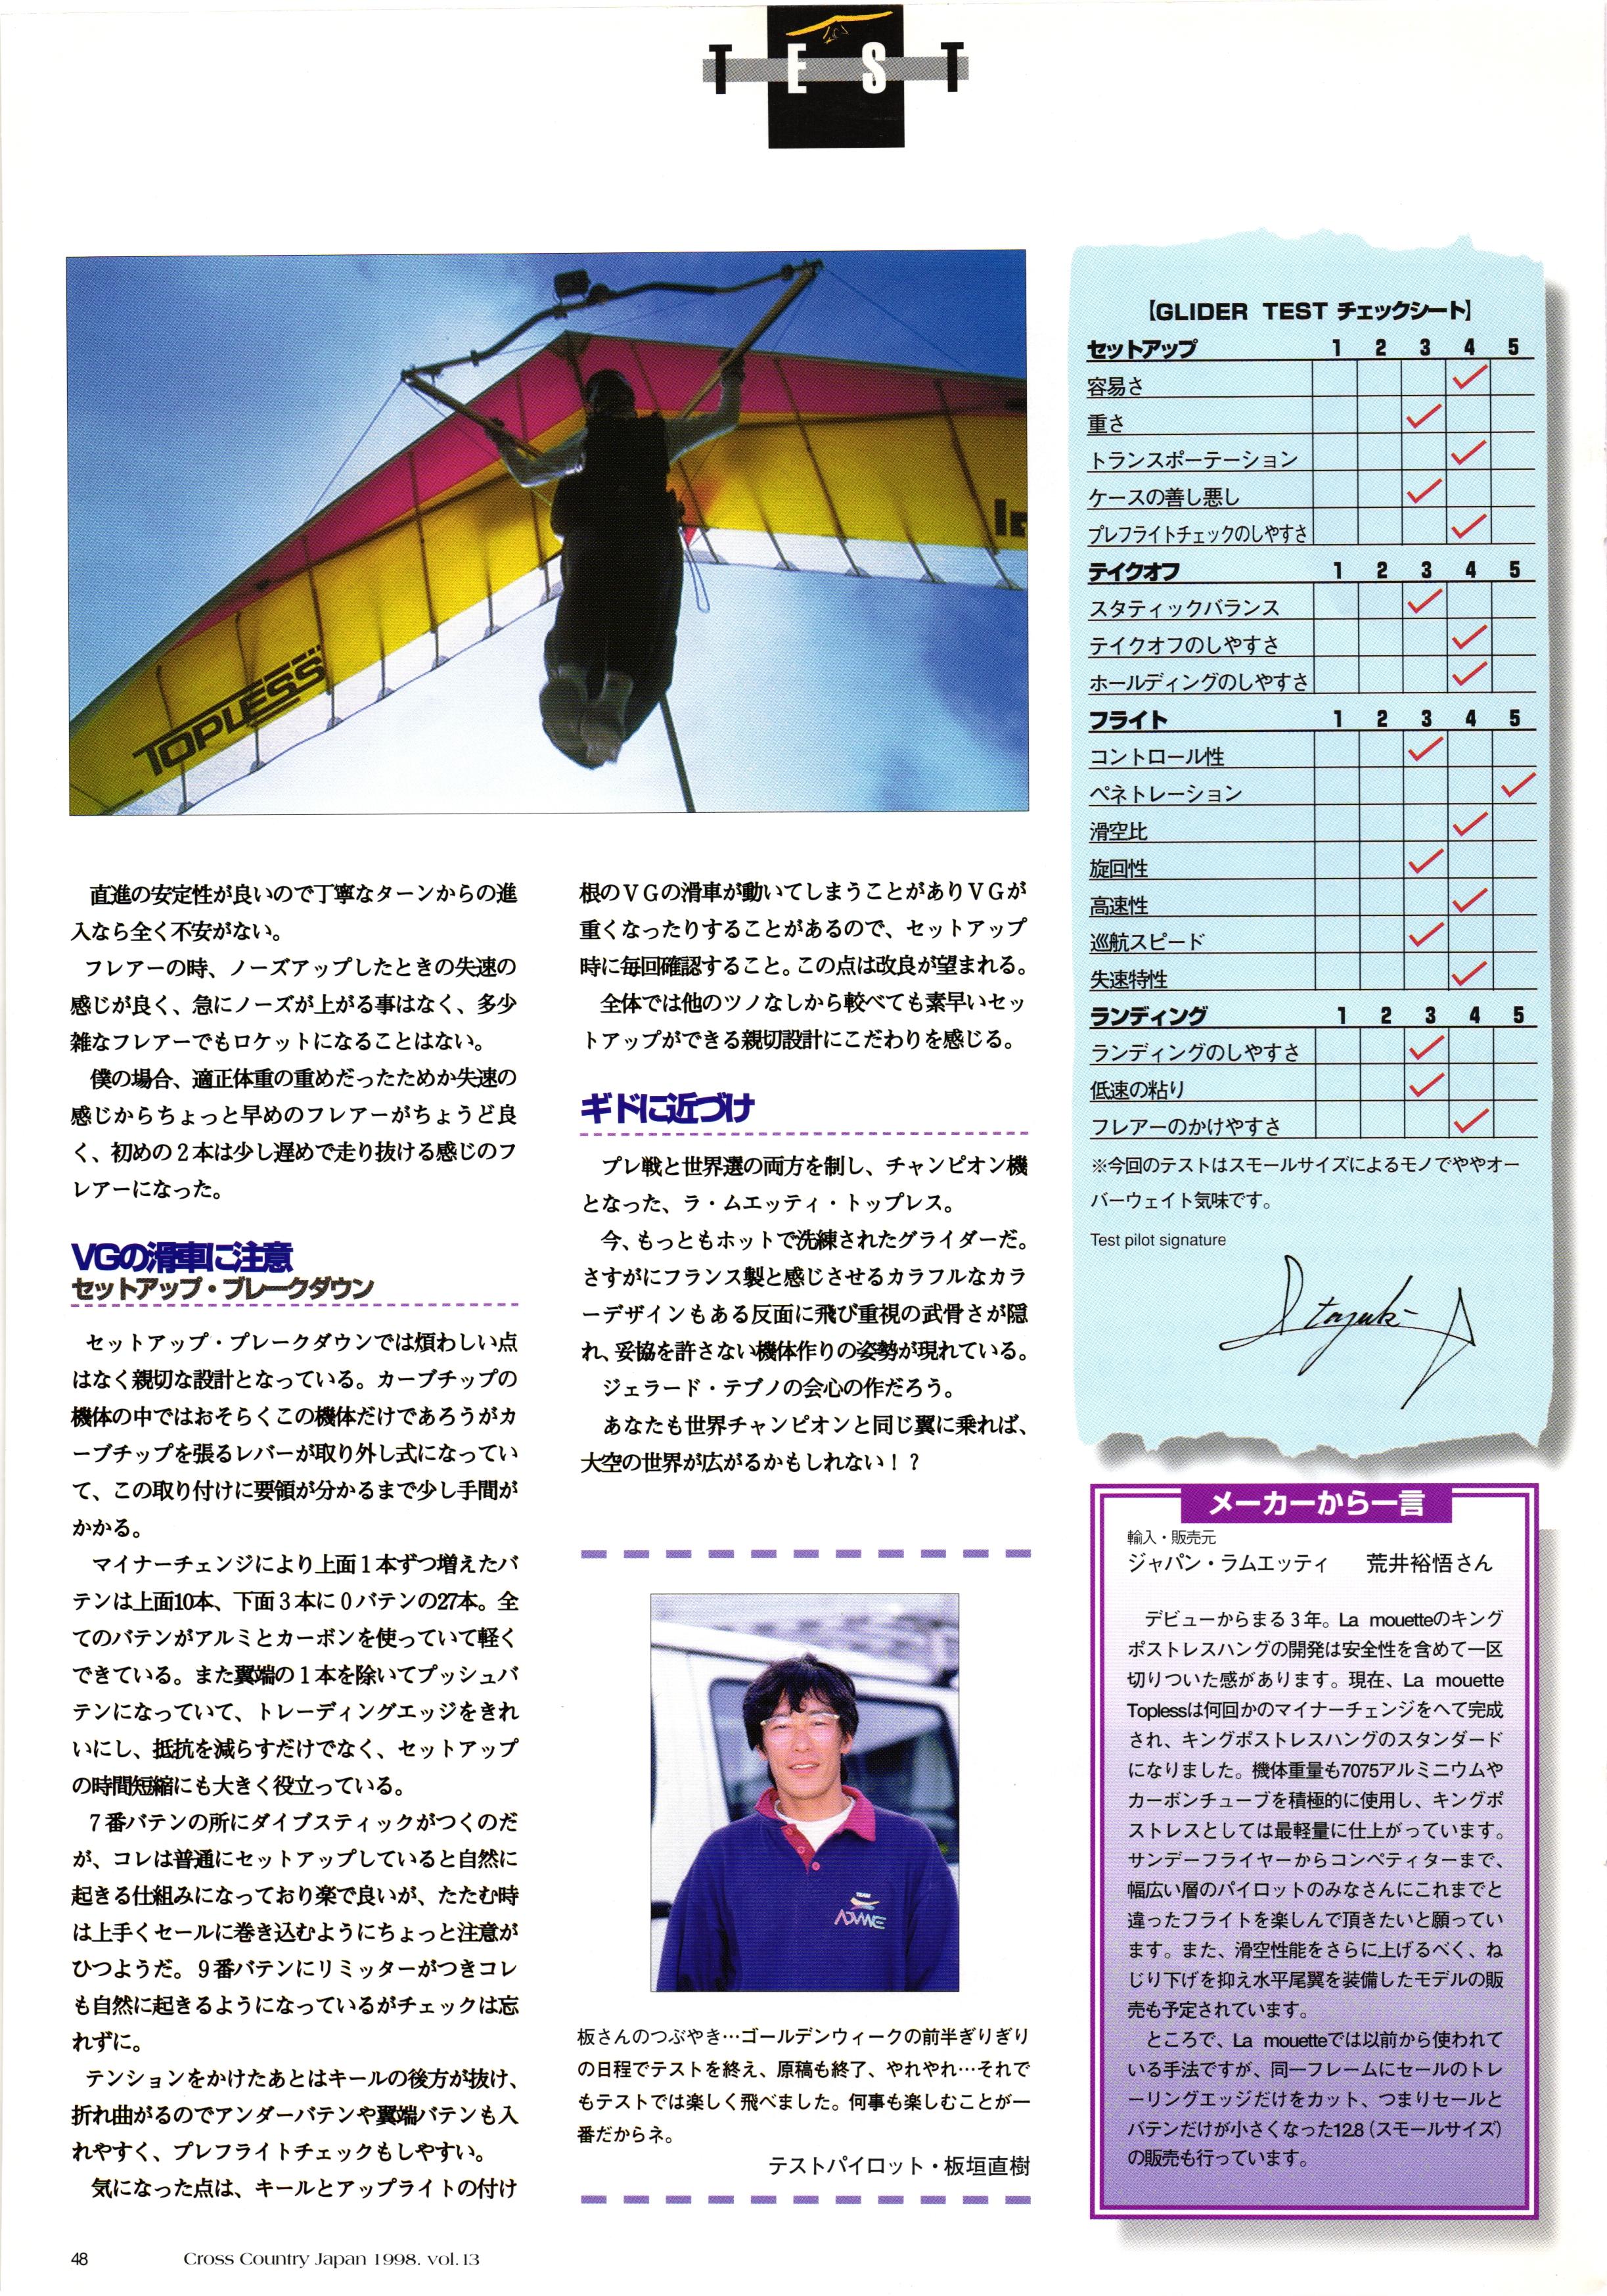 TEST
TOPLESS
直進の安定性が良いので丁寧なターンからの進
入なら全く不安がない。
フレアーの時、ノーズアップしたときの失速の
感じが良く、急にノーズが上がる事はなく、多少
雑なフレアーでもロケットになることはない。
僕の場合、適正体重の重めだったためか失速の
感じからちょっと早めのフレアーがちょうど良
く、初めの2本は少し遅めで走り抜ける感じのフ
レアーになった。
VGの滑車に注意
セットアップ・ブレークダウン
セットアップ・ブレークダウンでは煩わしい点
はなく親切な設計となっている。カーブチップの
機体の中ではおそらくこの機体だけであろうがカ
ーブチップを張るレバーが取り外し式になってい
て、この取り付けに要領が分かるまで少し手間が
かかる。
マイナーチェンジにより上面1本ずつ増えたバ
テンは上面10本、下面3本に0バテンの27本。全
てのバテンがアルミとカーボンを使っていて軽く
できている。また翼端の1本を除いてプッシュバ
テンになっていて、トレーディングエッジをきれ
いにし、抵抗を減らすだけでなく、セットアップ
の時間短縮にも大きく役立っている。
7番バテンの所にダイブスティックがつくのだ
が、コレは普通にセットアップしていると自然に
起きる仕組みになっており楽で良いが、たたむ時
は上手くセールに巻き込むようにちょっと注意が
ひつようだ。9番バテンにリミッターがつきコレ
も自然に起きるようになっているがチェックは忘
れずに。
テンションをかけたあとはキールの後方が抜け、
折れ曲がるのでアンダーバテンや翼端バテンも入
れやすく、プレフライトチェックもしやすい。
気になった点は、キールとアップライトの付け
根のVGの滑車が動いてしまうことがありVGが
重くなったりすることがあるので、セットアップ
時に毎回確認すること。この点は改良が望まれる。
全体では他のツノなしから較べても素早いセッ
トアップができる親切設計にこだわりを感じる。
ギドに近づけ
プレ戦と世界選の両方を制し、チャンピオン機
となった、ラ・ムエッティ・トップレス。
今、もっともホットで洗練されたグライダーだ。
さすがにフランス製と感じさせるカラフルなカラ
ーデザインもある反面に飛び重視の武骨さが隠
れ、妥協を許さない機体作りの姿勢が現れている。
ジェラード・テブノの会心の作だろう。
あなたも世界チャンピオンと同じ翼に乗れば、
大空の世界が広がるかもしれない！？
TEAM
ADVANCE
板さんのつぶやき…ゴールデンウィークの前半ぎりぎり
の日程でテストを終え、原稿も終了、やれやれ…それで
もテストでは楽しく飛べました。何事も楽しむことが一
番だからネ。
テストパイロット・板垣直樹
【GLIDER TEST チェックシート】
セットアップ 1 2 3 4 5
容易さ ✓
重さ ✓
トランスポーテーション ✓
ケースの善し悪し ✓
プレフライトチェックのしやすさ ✓
テイクオフ 1 2 3 4 5
スタティックバランス ✓
テイクオフのしやすさ ✓
ホールディングのしやすさ ✓
フライト 1 2 3 4 5
コントロール性 ✓
ペネトレーション ✓
滑空比 ✓
旋回性 ✓
高速性 ✓
巡航スピード ✓
失速特性 ✓
ランディング 1 2 3 4 5
ランディングのしやすさ ✓
低速の粘り ✓
フレアーのかけやすさ ✓
※今回のテストはスモールサイズによるモノでややオー
バーウェイト気味です。
Test pilot signature
メーカーから一言
輸入・販売元
ジャパン・ラムエッティ 荒井裕悟さん
デビューからまる3年。La mouetteのキング
ポストレスハングの開発は安全性を含めて一区
切りついた感があります。現在、La mouette
Toplessは何回かのマイナーチェンジをへて完成
され、キングポストレスハングのスタンダード
になりました。機体重量も7075アルミニウムや
カーボンチューブを積極的に使用し、キングポ
ストレスとしては最軽量に仕上がっています。
サンデーフライヤーからコンペティターまで、
幅広い層のパイロットのみなさんにこれまでと
違ったフライトを楽しんで頂きたいと願ってい
ます。また、滑空性能をさらに上げるべく、ね
じり下げを抑え水平尾翼を装備したモデルの販
売も予定されています。
ところで、La mouetteでは以前から使われて
いる手法ですが、同一フレームにセールのトレ
ーリングエッジだけをカット、つまりセールと
バテンだけが小さくなった12.8（スモールサイズ）
の販売も行っています。
48 Cross Country Japan 1998. vol.13